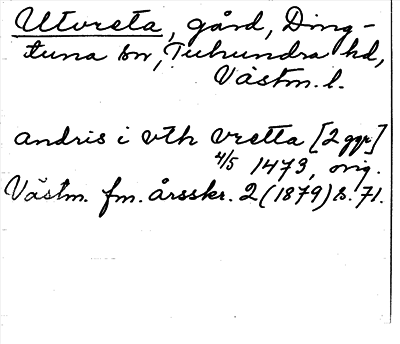 Utvreta, gård, Ding-
tuna sn, Tuhundra hd,
Västm. l.
andris i vth vretta [2 ggr]
4/5 1473, orig.
Västm. fm. årsskr. 2 (1879) s. 71.